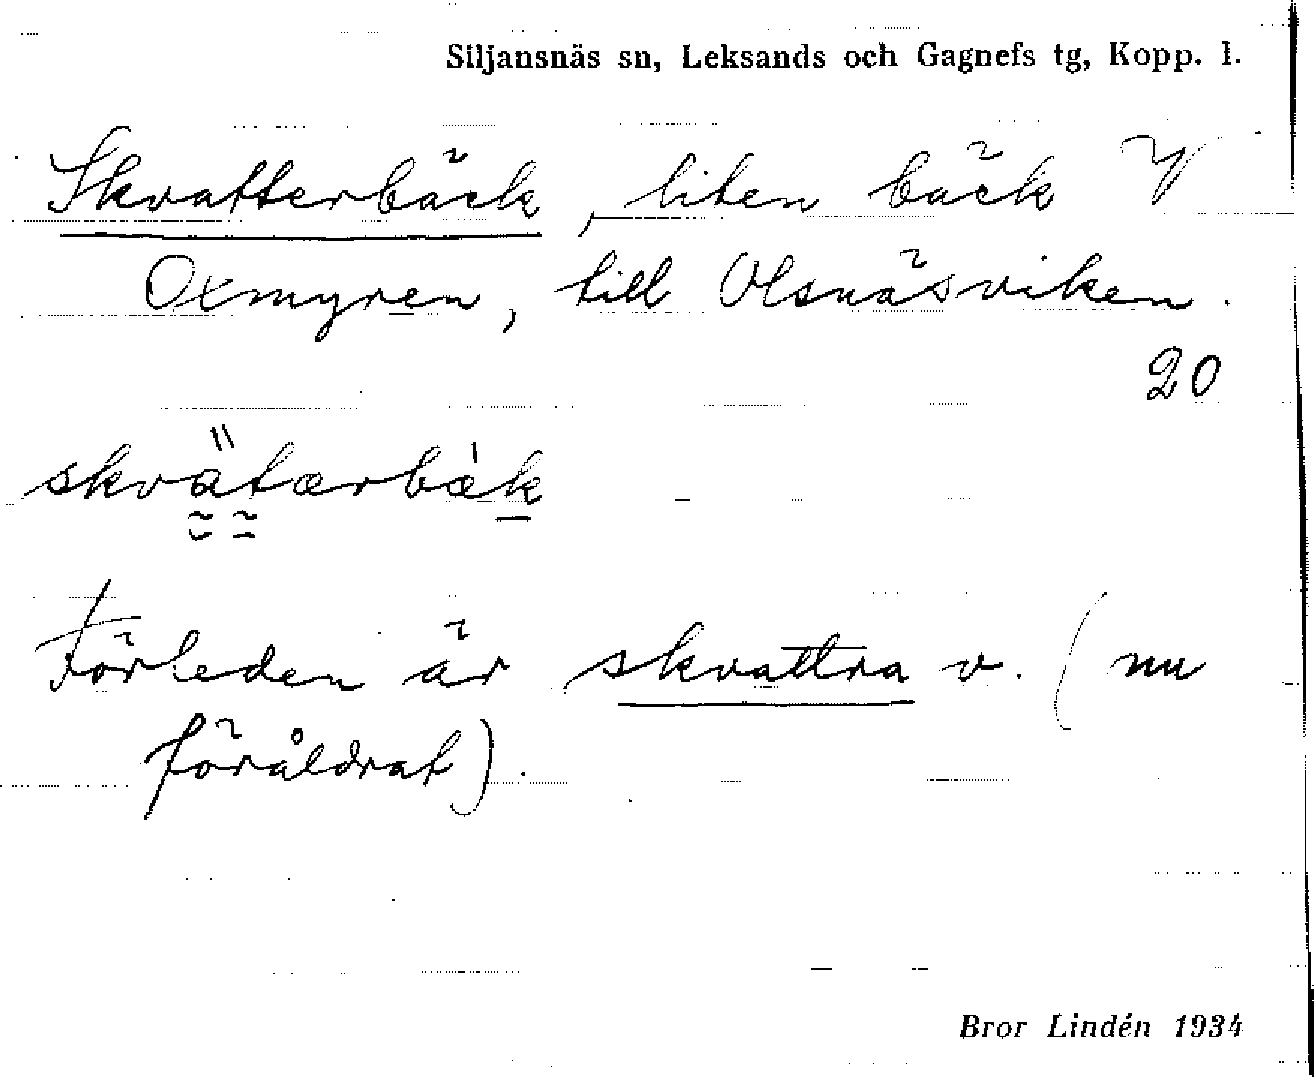 Siljansnäs sn, Leksands och Gagnefs tg, Kopp. l.
Skvatterbäck, liten bäck
Oxmyren, till Olsnäsviken.
20
skvätærbæk
Förleden är skvattra v. (nu
föråldrat).
Bror Lindén 1934